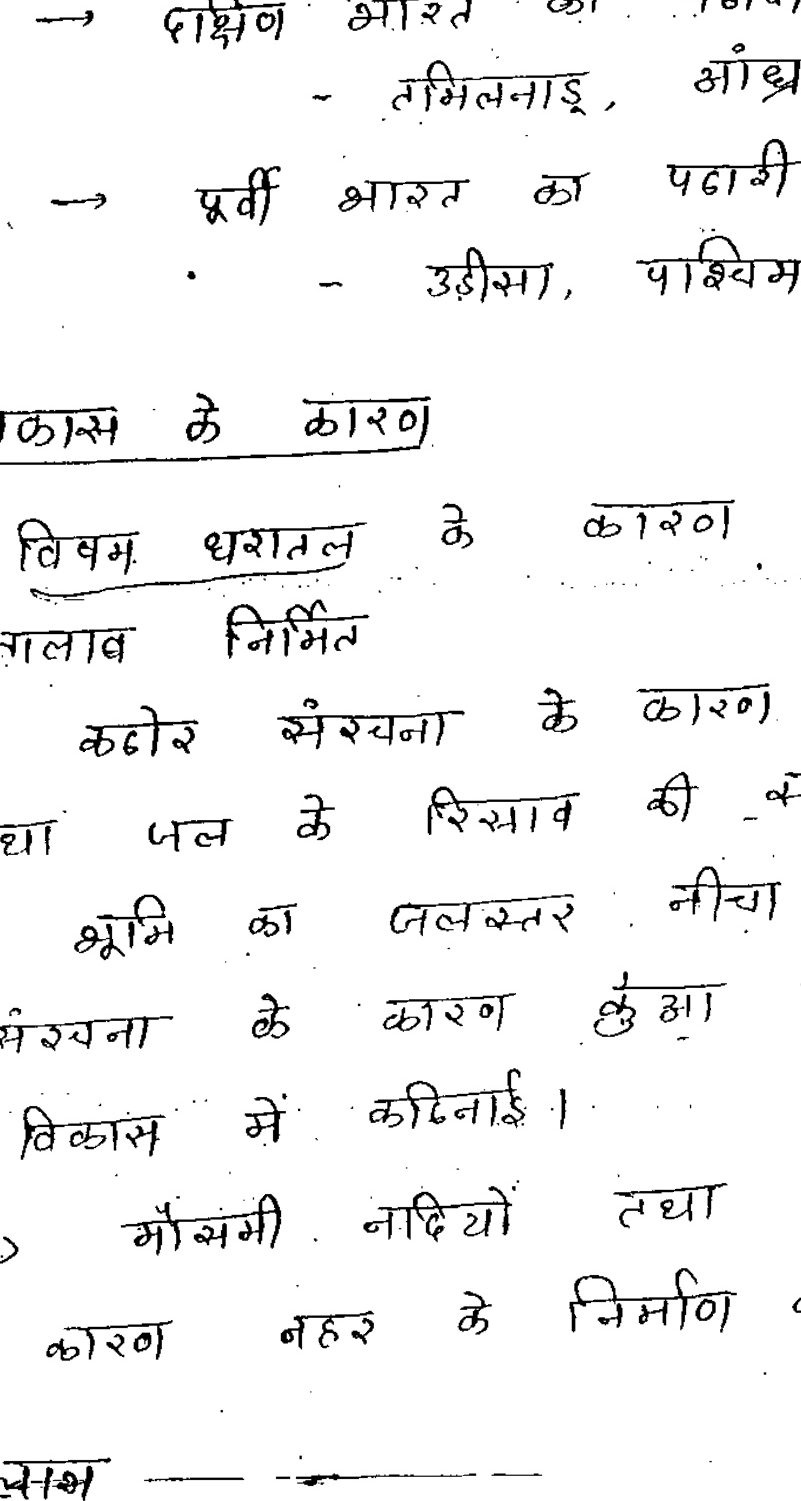 → दक्षिण भारत का
- तमिलनाडू, आंध्र
→ पूर्वी भारत का पठारी
- उड़ीसा, पश्चिम
कास के कारण
विषम धरातल के कारण
तालाब निर्मित
कठोर संरचना के कारण
था जल के रिसाव की
भूमि का जलस्तर नीचा
संरचना के कारण कुँआ
विकास में कठिनाई।
मौसमी नदियों तथा
कारण नहर के निर्माण
लाभ